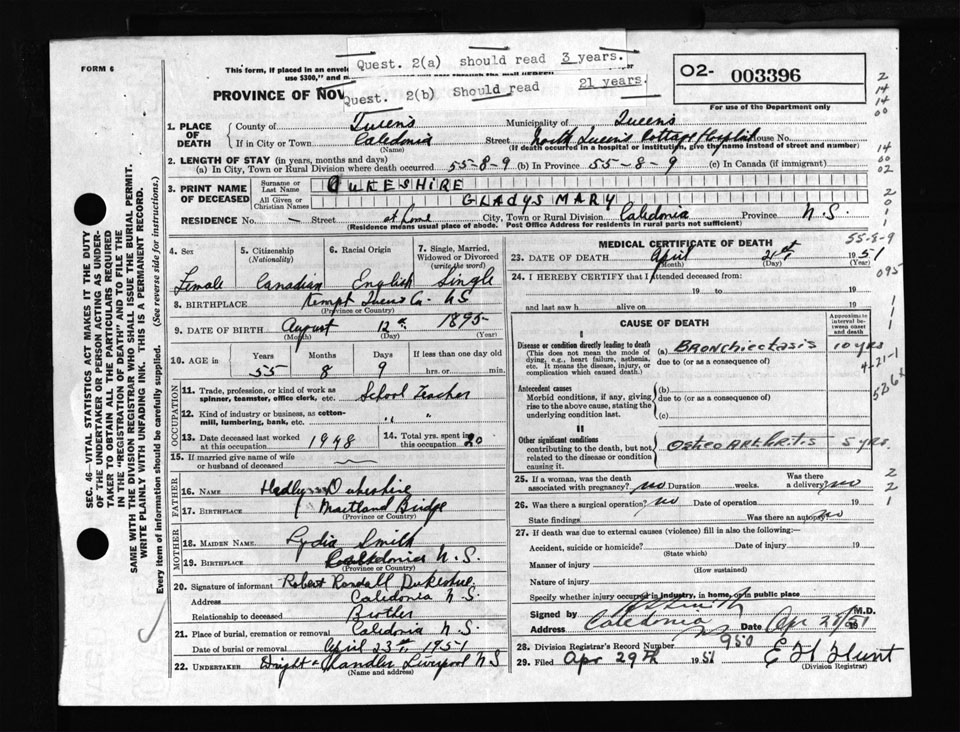 FORM 6
This form, if placed in an envel
use $300," and m
Quest. 2(a) should read 3 years.
Quest. 2(b) Should read 21 years.
PROVINCE OF NOV
02- 003396
For use of the Department only
1. PLACE OF DEATH
County of Queens Municipality of Queens
If in City or Town Caledonia Street North Queens Cottage Hospital House No.
(Name) (If death occurred in a hospital or institution, give the name instead of street and number)
2. LENGTH OF STAY (in years, months and days)
(a) In City, Town or Rural Division where death occurred 55-8-9 (b) In Province 55-8-9 (c) In Canada (if immigrant)
3. PRINT NAME OF DECEASED
Surname or Last Name DUKESHIRE
All Given or Christian Names GLADYS MARY
RESIDENCE No. — Street at home City, Town or Rural Division Caledonia Province N.S.
(Residence means usual place of abode. Post Office Address for residents in rural parts not sufficient)
4. Sex
Female
5. Citizenship (Nationality)
Canadian
6. Racial Origin
English
7. Single, Married, Widowed or Divorced (write the word)
Single
8. BIRTHPLACE Kempt Queens Co. NS
(Province or Country)
9. DATE OF BIRTH August 12th 1895
(Month) (Day) (Year)
10. AGE in Years Months Days If less than one day old
55 8 9 hrs. or min.
OCCUPATION
11. Trade, profession, or kind of work as spinner, teamster, office clerk, etc. School Teacher
12. Kind of industry or business, as cotton-mill, lumbering, bank, etc. " "
13. Date deceased last worked at this occupation 1948
14. Total yrs. spent in this occupation 20
15. If married give name of wife or husband of deceased
FATHER
16. NAME Hadly Dukeshire
17. BIRTHPLACE Maitland Bridge
(Province or Country)
MOTHER
18. MAIDEN NAME Lydia Smith
19. BIRTHPLACE Caledonia N.S.
(Province or Country)
20. Signature of informant Robert Randall Dukeshire
Address Caledonia N.S.
Relationship to deceased Brother
21. Place of burial, cremation or removal Caledonia N.S.
Date of burial or removal April 23rd 1951
22. UNDERTAKER Chandler Liverpool NS
(Name and address)
MEDICAL CERTIFICATE OF DEATH
23. DATE OF DEATH April 21st 1951
(Month) (Day) (Year)
24. I HEREBY CERTIFY that I attended deceased from:
19 to 19
and last saw h alive on 19
CAUSE OF DEATH
Approximate interval between onset and death
I
Disease or condition directly leading to death
(This does not mean the mode of dying, e.g., heart failure, asthenia, etc. It means the disease, injury, or complication which caused death.)
(a) Bronchiectasis 10 yrs
due to (or as a consequence of)
Antecedent causes
Morbid conditions, if any, giving rise to the above cause, stating the underlying condition last.
(b)
due to (or as a consequence of)
(c)
II
Other significant conditions
contributing to the death, but not related to the disease or condition causing it.
Osteo Arthritis 5 yrs
25. If a woman, was the death associated with pregnancy? no Duration weeks. Was there a delivery? no
26. Was there a surgical operation? no Date of operation 19
State findings Was there an autopsy? no
27. If death was due to external causes (violence) fill in also the following:—
Accident, suicide or homicide? Date of injury 19
(State which)
Manner of injury
(How sustained)
Nature of injury
Specify whether injury occurred in industry, in home, or in public place
Signed by Smith M.D.
Address Caledonia Date Apr 28/51
28. Division Registrar's Record Number 950
29. Filed Apr 29th 1951 E H Hunt
(Division Registrar)
SEC. 46—VITAL STATISTICS ACT MAKES IT THE DUTY OF THE UNDERTAKER OR PERSON ACTING AS UNDERTAKER TO OBTAIN ALL THE PARTICULARS REQUIRED IN THE "REGISTRATION OF DEATH" AND TO FILE THE SAME WITH THE DIVISION REGISTRAR WHO SHALL ISSUE THE BURIAL PERMIT.
WRITE PLAINLY WITH UNFADING INK. THIS IS A PERMANENT RECORD.
Every item of information should be carefully supplied. (See reverse side for instructions.)
2
14
14
00
14
00
02
2
0
1
1
55-8-9
095
1
1
1
4-21-1
526x
2
2
1